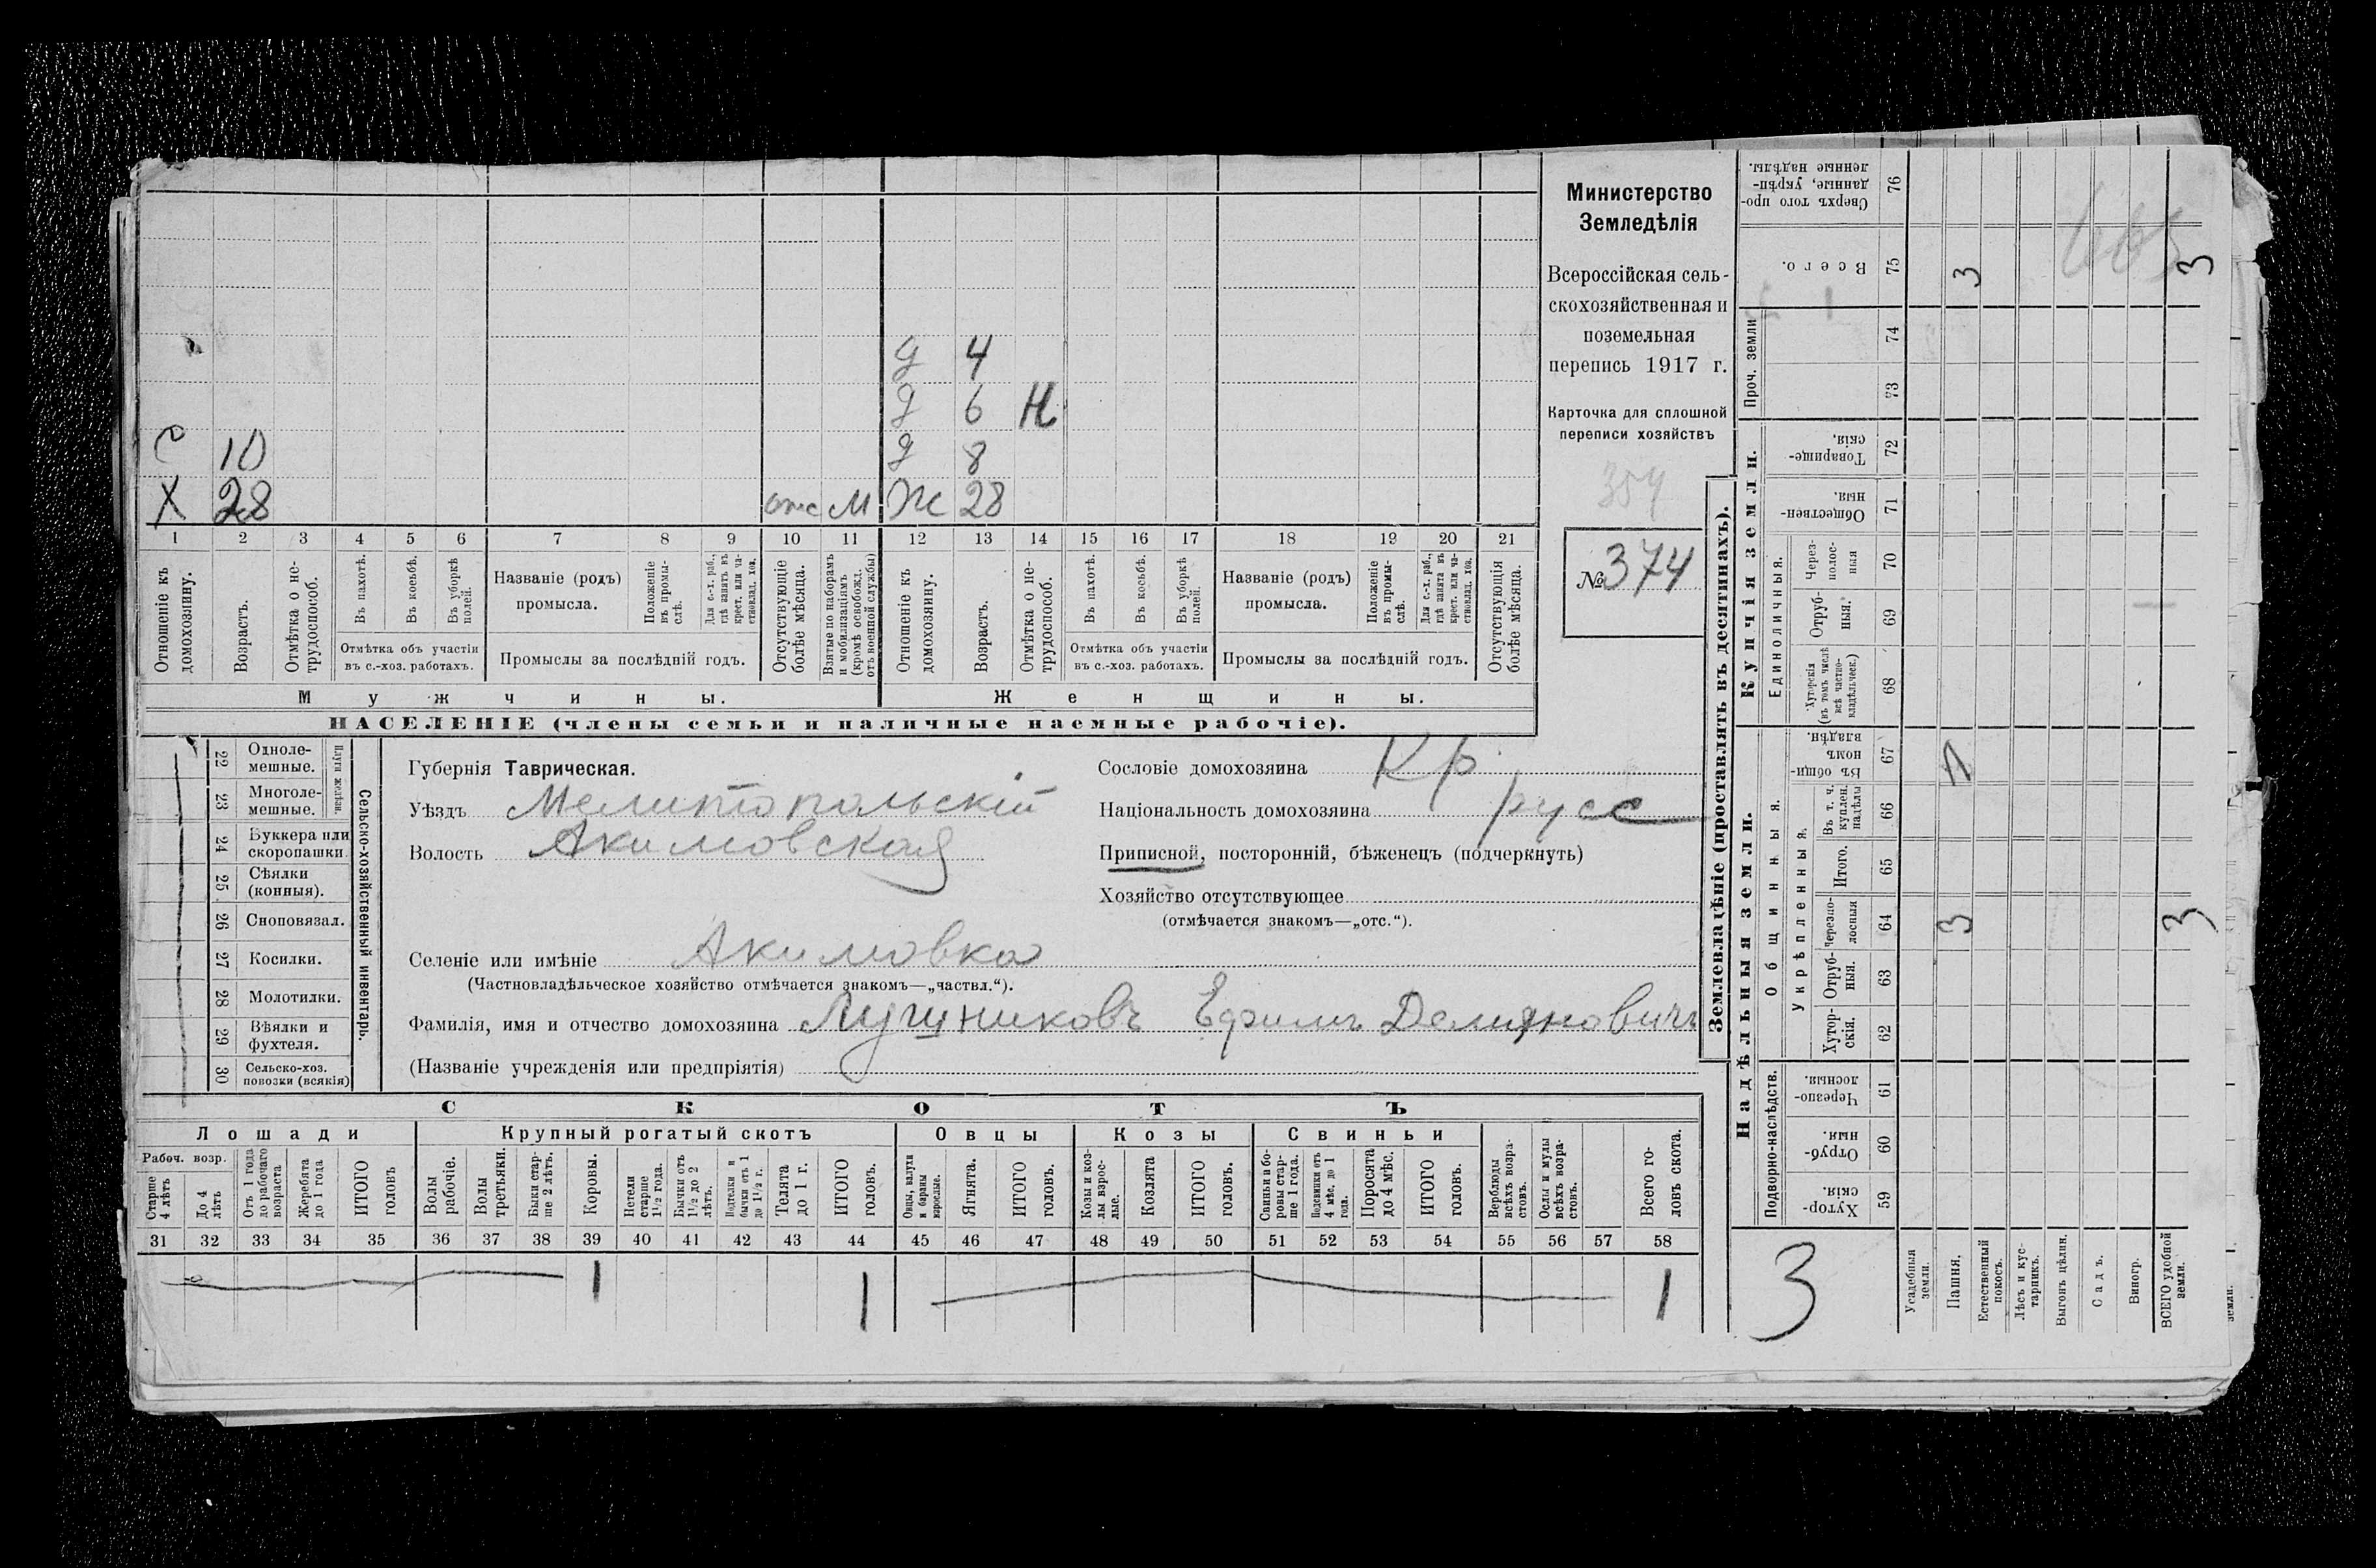 д 4
д 6 Н
С 10 д 8
Х 28 отс М Ж 28
1 2 3 4 5 6 7 8 9 10 11 12 13 14 15 16 17 18 19 20 21
Отношеніе къ домохозяину.
Возрастъ.
Отмѣтка о не-трудоспособ.
Въ пахотѣ.
Въ косьбѣ.
Въ уборкѣ полей.
Отмѣтка объ участіи
въ с.-хоз. работахъ.
Названіе (родъ)
промысла.
Положеніе въ промы-слѣ.
Для с.-х. раб., гдѣ занятъ въ крест. или ча-стновлад. хоз.
Промыслы за послѣдній годъ.
Отсутствующіе болѣе мѣсяца.
Взятые по наборамъ и мобилизаціямъ (кромѣ освобожд. отъ военной службы)
Отношеніе къ домохозяину.
Возрастъ.
Отмѣтка о не-трудоспособ.
Въ пахотѣ.
Въ косьбѣ.
Въ уборкѣ полей.
Отмѣтка объ участіи
въ с.-хоз. работахъ.
Названіе (родъ)
промысла.
Положеніе въ промы-слѣ.
Для с.-х. раб., гдѣ занята въ крест. или ча-стновлад. хоз.
Промыслы за послѣдній годъ.
Отсутствующія болѣе мѣсяца.
Мужчины. Женщины.
НАСЕЛЕНІЕ (члены семьи и наличные наемные рабочіе).
Министерство
Земледѣлія
Всероссійская сель-
скохозяйственная и
поземельная
перепись 1917 г.
Карточка для сплошной
переписи хозяйствъ
354
№ 374
Сельско-хозяйственный инвентарь.
Плуги желѣзн.
22 Одноле-
мешные.
23 Многоле-
мешные.
24 Буккера или
скоропашки.
25 Сѣялки
(конныя).
26 Сноповязал.
27 Косилки.
28 Молотилки.
29 Вѣялки и
фухтеля.
30 Сельско-хоз.
повозки (всякія)
Губернія Таврическая.
Уѣздъ Мелитопольскій
Волость Акимовская
Сословіе домохозяина Кр
Національность домохозяина русс
Приписной, посторонній, бѣженецъ (подчеркнуть)
Хозяйство отсутствующее
(отмѣчается знакомъ—„отс.“).
Селеніе или имѣніе Акимовка
(Частновладѣльческое хозяйство отмѣчается знакомъ—„частвл.“).
Фамилія, имя и отчество домохозяина Лущниковъ Ефимъ Демяновичъ
(Названіе учрежденія или предпріятія)
СКОТЪ
Лошади Крупный рогатый скотъ Овцы Козы Свиньи
Рабоч. возр.
Старше 4 лѣтъ
До 4 лѣтъ
Отъ 1 года до рабочаго возраста
Жеребята до 1 года
ИТОГО головъ
Волы рабочіе.
Волы третьяки.
Быки стар-ше 2 лѣтъ.
Коровы.
Нетели старше 1½ года.
Бычки отъ 1½ до 2 лѣтъ.
Подтелки и бычки отъ 1 до 1½ г.
Телята до 1 г.
ИТОГО головъ.
Овцы, валухи и бараны взрослые.
Ягнята.
ИТОГО головъ.
Козы и коз-лы взрос-лые.
Козлята
ИТОГО головъ.
Свиньи и бо-ровы стар-ше 1 года.
Подсвинки отъ 4 мѣс. до 1 года.
Поросята до 4 мѣс.
ИТОГО головъ.
Верблюды всѣхъ возра-стовъ.
Ослы и мулы всѣхъ возра-стовъ.
Всего го-ловъ скота.
31 32 33 34 35 36 37 38 39 40 41 42 43 44 45 46 47 48 49 50 51 52 53 54 55 56 57 58
1 1 1
Землевладѣніе (проставлять въ десятинахъ).
Надѣльныя земли. Купчія земли.
Подворно-наслѣдств.
Общинныя.
Укрѣпленныя.
Единоличныя.
Проч. земли
Сверхъ того про-данные, укрѣп-ленные надѣлы. 76
Всего. 75 3 3
74
73
Товарище-скія. 72
Обществен-ныя. 71
Через-полос-ныя 70
Отруб-ныя. 69
Хуторскія (въ томъ числѣ всѣ частно-владѣльческ.) 68
Въ общи-номъ владѣн. 67
Въ т. ч. куплен. надѣлы 66
Итого. 65
Черезпо-лосныя 64 3 3
Отруб-ныя. 63
Хутор-скія. 62
Черезпо-лосныя. 61
Отруб-ныя. 60
Хутор-скія. 59
3
Усадебныя земли.
Пашня.
Естественный покосъ.
Лѣсъ и кус-тарникъ.
Выгонъ цѣлин.
Садъ.
Виногр.
ВСЕГО удобной земли.
земли.